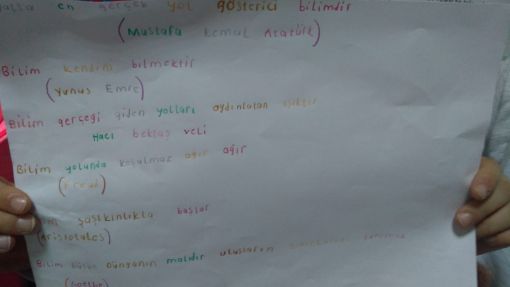 en gerçek yol gösterici bilimdir
(Mustafa Kemal Atatürk)
Bilim kendini bilmektir
(Yunus Emre)
Bilim gerçeği giden yolları aydınlatan ışıktır
Hacı bektaş veli
Bilim yolunda koşulmaz ağır ağır
şaşkınlıkta başlar
(Aristotales)
Bilim bütün Dünyanın malıdır ulusların